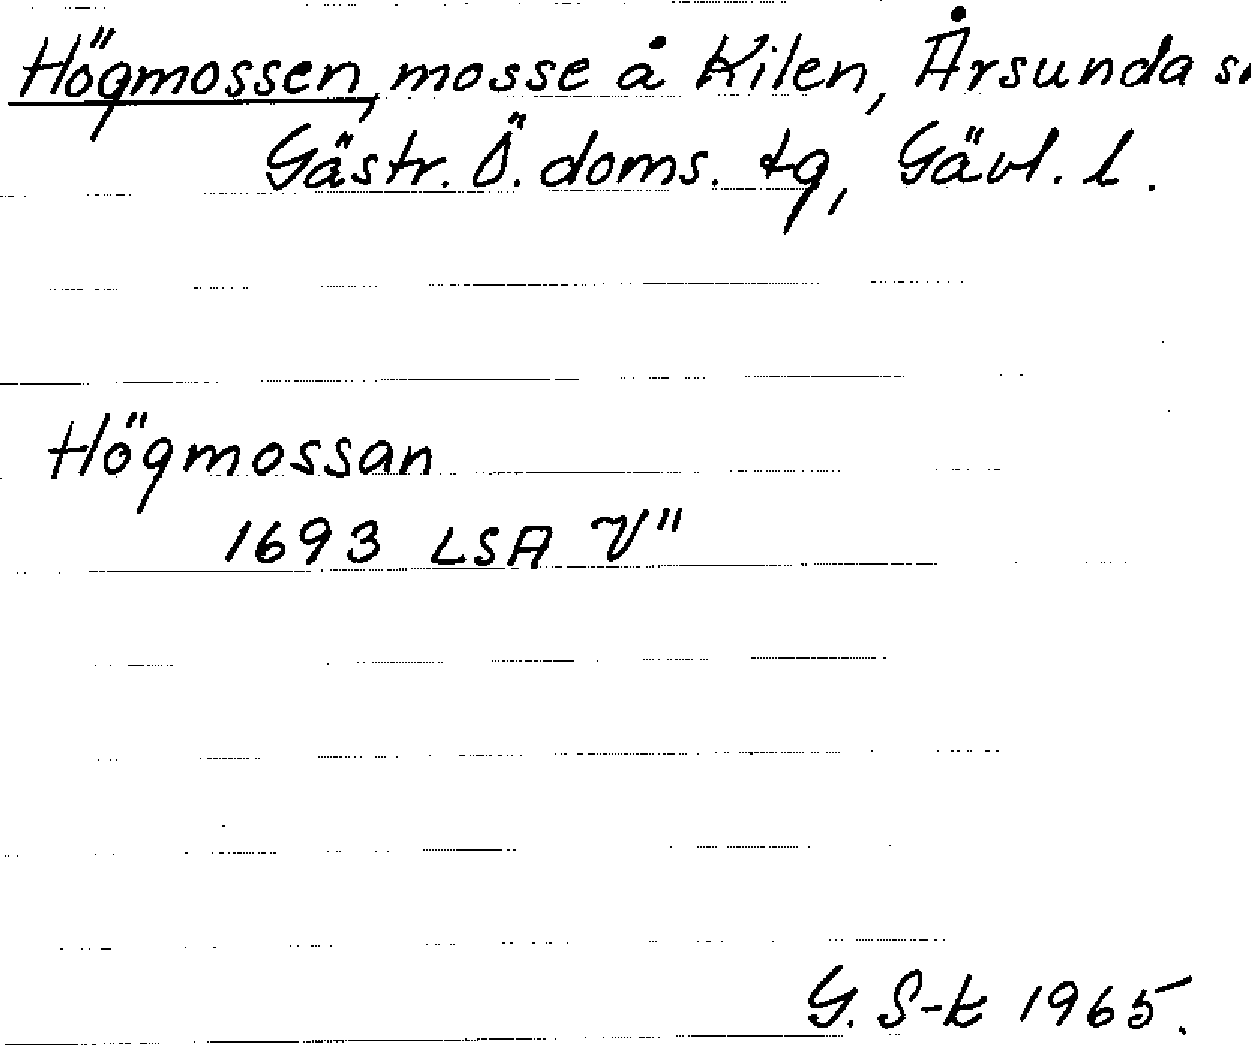 Högmossen, mosse å Kilen, Årsunda
Gästr. Ö. doms. tg, Gävl. l.
Högmossan
1693 LSA V"
G. S-k 1965.